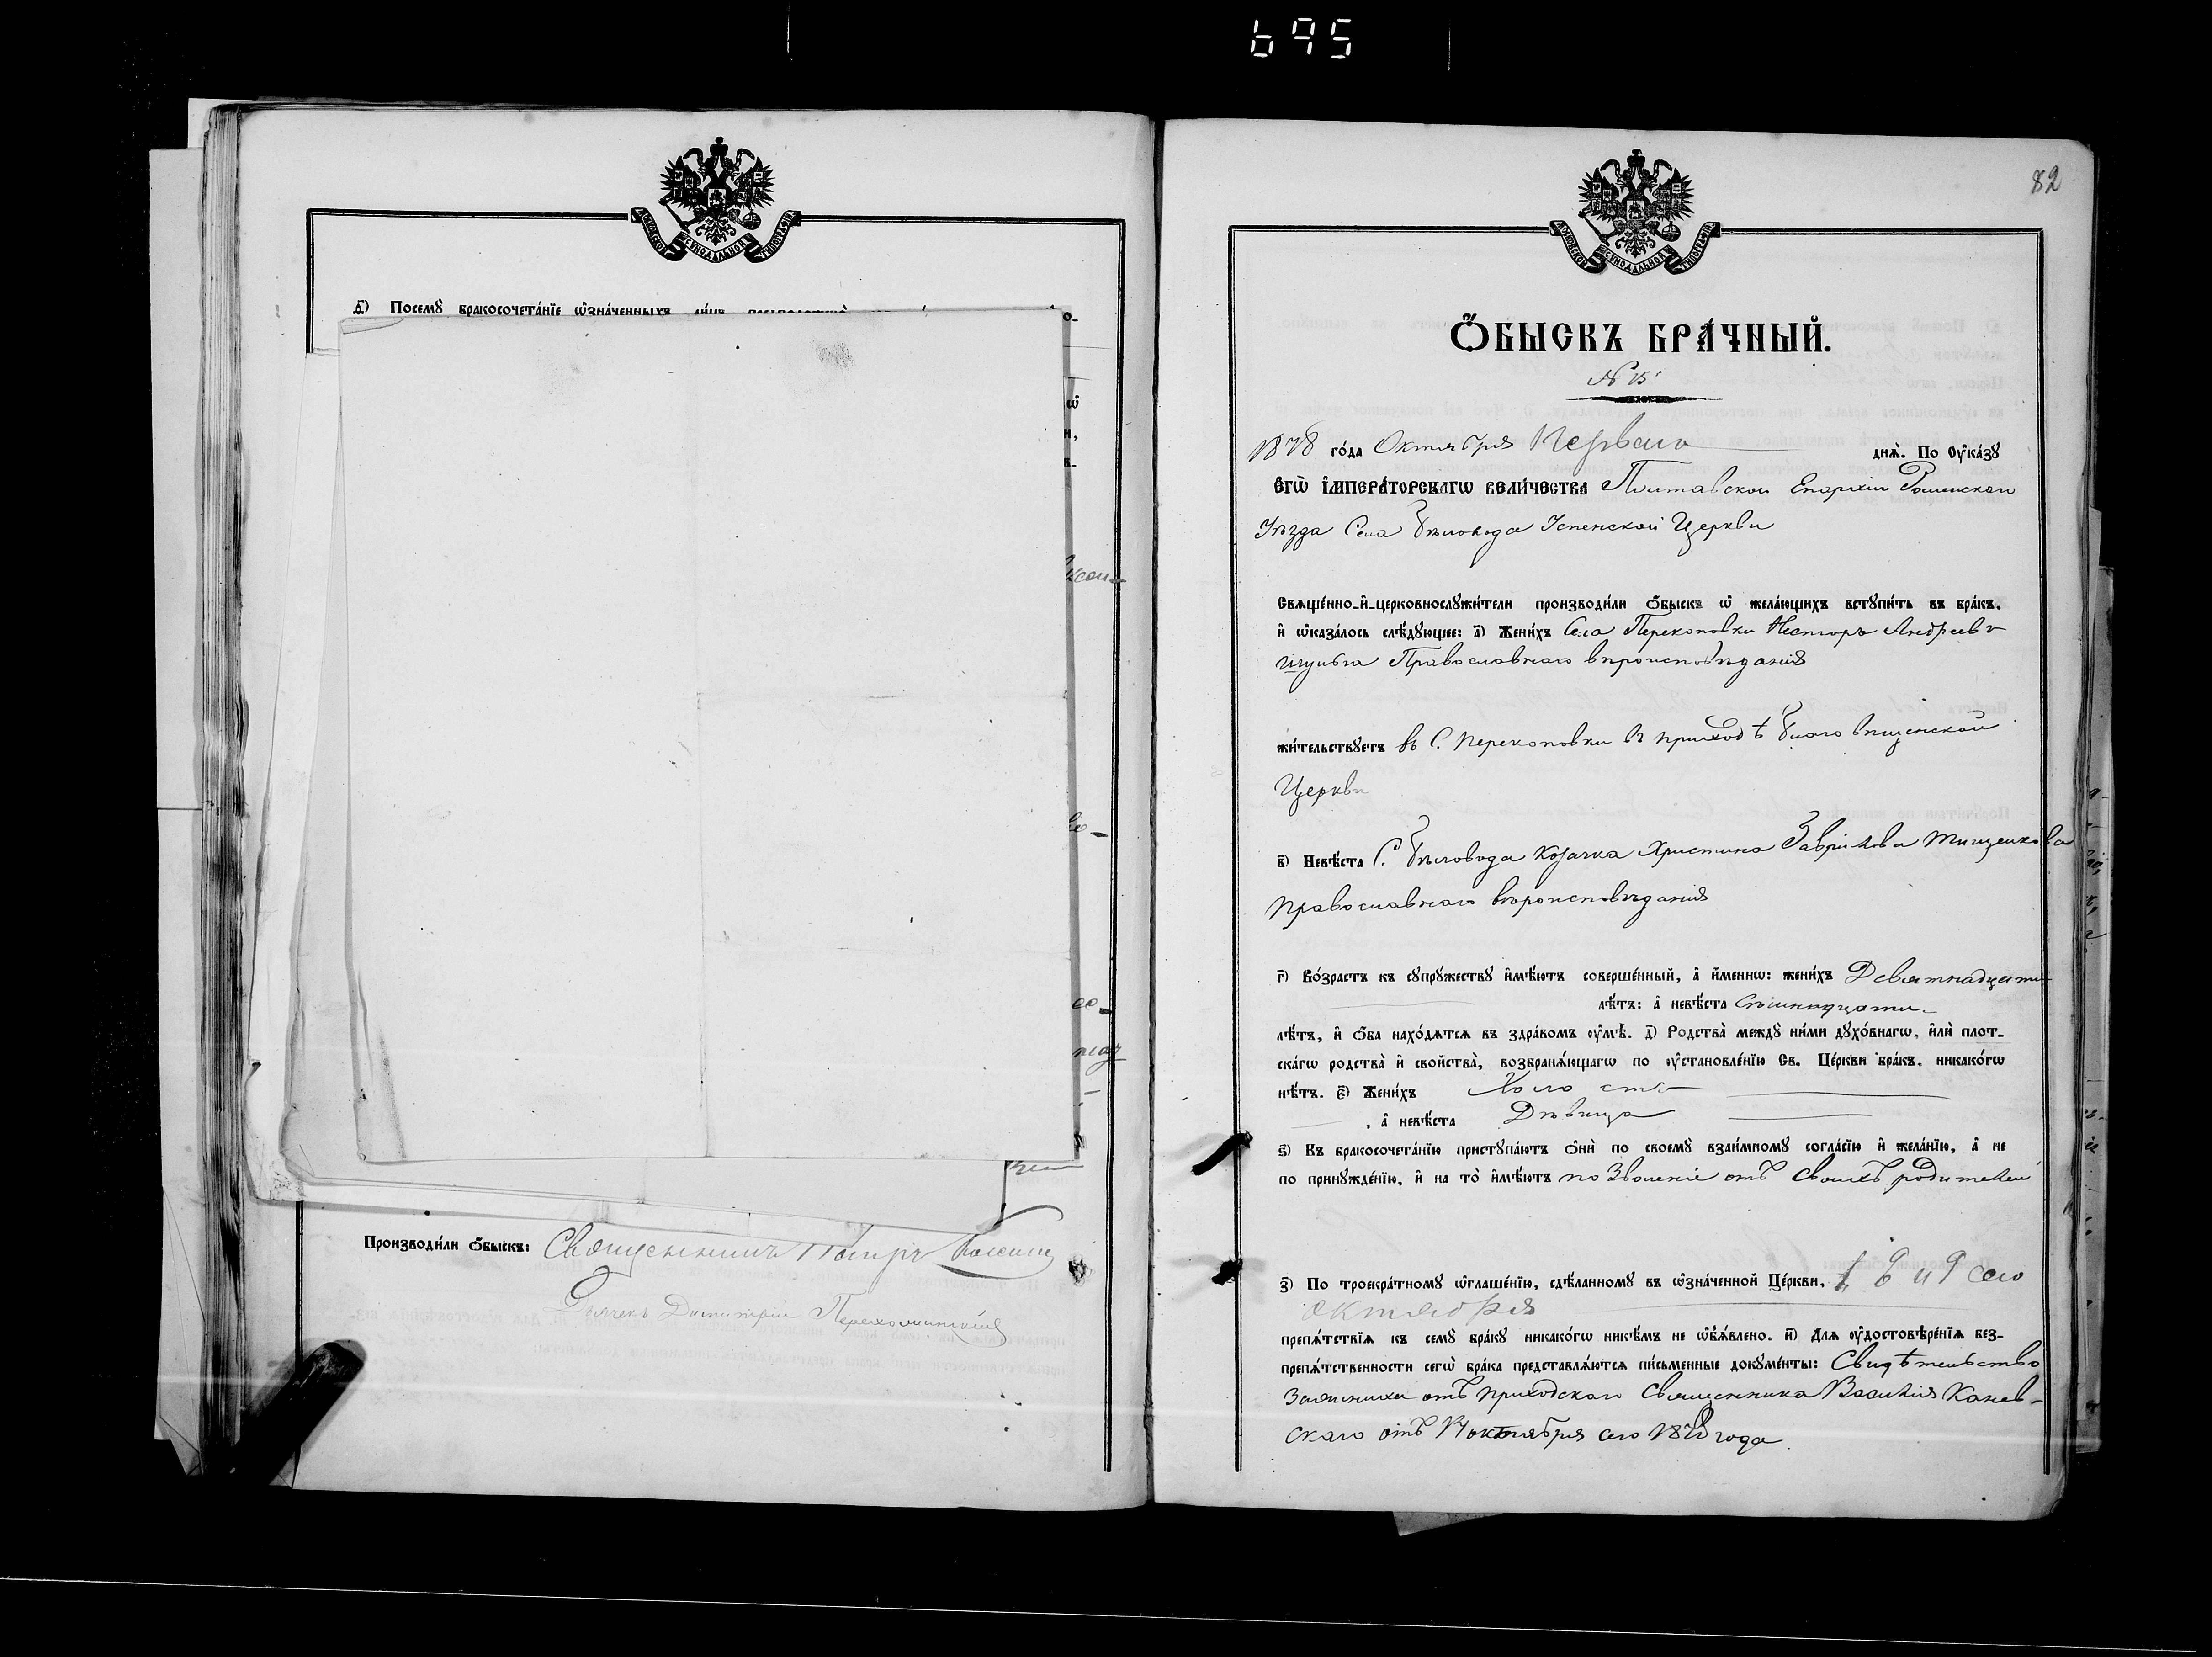 695
МОСКОВСКОЙ СУНОДАЛЬНОЙ ТИПОГРАФІИ
д҃) Посемꙋ̀ бракосочета́нїе ѡ҆зна́ченныхъ
Произвѡди́ли ѻ҆́быскъ: Священникъ Петръ
Дьячекъ Димитрій
82
МОСКОВСКОЙ СУНОДАЛЬНОЙ ТИПОГРАФІИ
Ѻ҆́БЫСКЪ БРА́ЧНЫЙ.
№ 15
1878 го́да Октября Перваго дн҃ѧ̀. По ᲂу҆ка́зꙋ
Є҆гѡ̀ І҆мпера́торскагѡ вели́чества Полтавской Епархіи Роменскаго
Уѣзда Села Бѣловода Успенской Церкви
Свѧще́нно-и҆-церковнослꙋжи́тели производи́ли ѻ҆́быскъ ѡ҆ жела́ющихъ встꙋпи́ть въ бра́къ,
и҆ ѡ҆каза́лось слѣ́дꙋющее: а҃) Жени́хъ Села Перекоповки Несторъ Андреевъ
Шульга Православнаго вѣроисповѣданія
жи́тельствꙋетъ въ С. Перекоповки въ приходѣ Благовѣщенской
Церкви
в҃) Невѣ́ста С. Бѣловода Козачка Христина Гаврілова Тищенкова
Православнаго вѣроисповѣданія
г҃) Во́зрастъ къ сꙋпрꙋ́жествꙋ и҆мѣ́ютъ соверше́нный, а҆ и҆́меннѡ: жени́хъ Девятнадцати
лѣ́тъ: а҆ невѣ́ста
лѣ́тъ, и҆ ѻ҆́ба нахо́дѧтсѧ въ здра́вомъ ᲂу҆мѣ̀. д҃) Родства̀ междꙋ ни́ми дꙋхо́внагѡ, и҆лѝ плот-
ска́гѡ родства̀ и҆ сво́йства, возбранѧ́ющагѡ по ᲂу҆становле́нїю Св. Це́ркви бра́къ, никако́гѡ
нѣ́тъ. є҃) Жени́хъ Холостъ
, а҆ невѣ́ста Дѣвица
ѕ҃) Къ бракосочета́нїю пристꙋпа́ютъ ѻ҆нѝ по своемꙋ̀ взаи́мномꙋ согла́сїю и҆ жела́нїю, а҆ не
по принꙋжде́нїю, и҆ на то̀ и҆мѣ́ютъ позволеніе отъ своихъ родителей
з҃) По троекра́тномꙋ ѡ҆глаше́нїю, сдѣ́ланномꙋ въ ѡ҆зна́ченной Це́ркви, 1, 6 и 9 сего
октября
препѧ́тствїѧ къ семꙋ̀ бра́кꙋ никако́гѡ никѣ́мъ не ѡ҆б̾ѧ́влено. и҃) Длѧ ᲂу҆достовѣре́нїѧ без-
препѧ́тственности сегѡ̀ бра́ка представлѧ́ютсѧ пи́сьменные докꙋме́нты: Свидѣтельство
Зажениха отъ приходскаго Священника Василія Канев-
скаго отъ октября сего 1878 года.